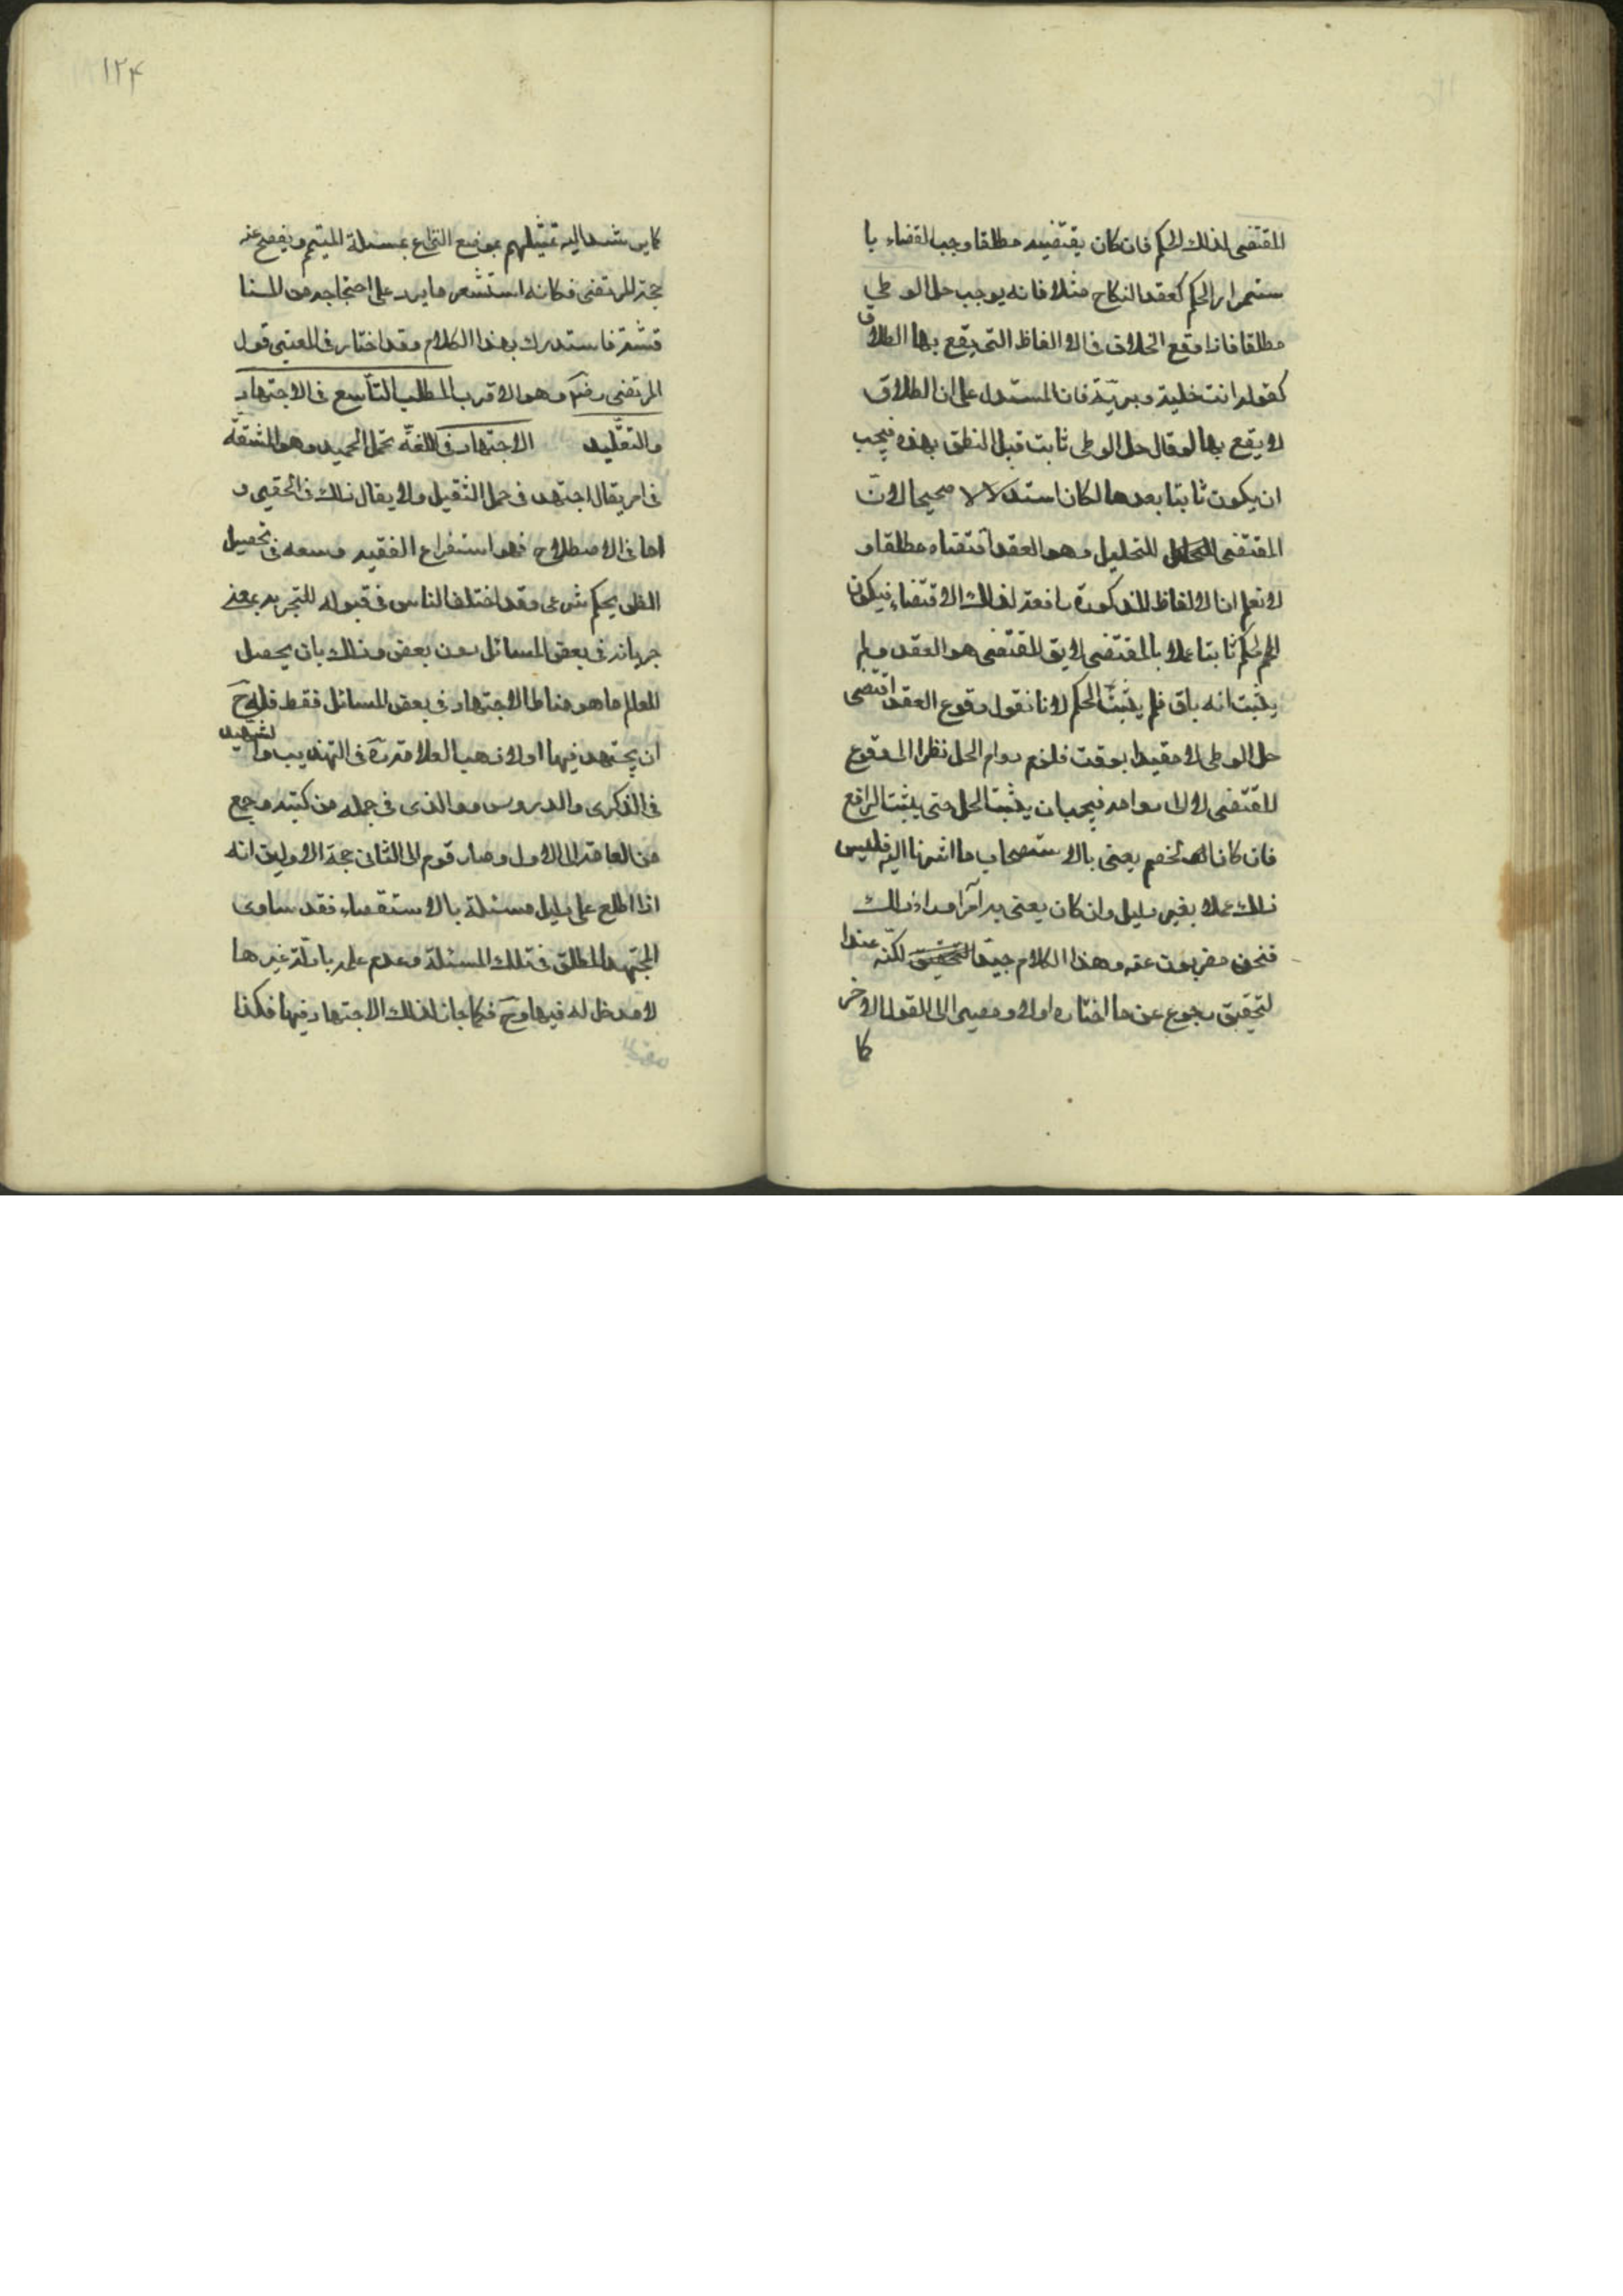 المقتضى لذلك الحكم فان كان يقتضيه مطلقا وجب القضاء با
ستمرار الحكم كعقد النكاح مثلا فانه يوجب حل الوطى
مطلقا فاذا وقع الخلاف فى الالفاظ التى يقع بها الطلاق
كقوله انت خلية وبريّة فان المستدل على ان الطلاق
لا يقع بها لو قال حل الوطى ثابت قبل النطق بهذه فيجب
ان يكون ثابتا بعدها لكان استدلالا صحيحا لانّ
المقتضى للتحليل وهو العقد اقتضاه مطلقا و
لا نعلم ان الالفاظ المذكورة رافعة لذلك الاقتضاء فيكون
الحكم ثابتا عملا بالمقتضى لا يق المقتضى هو العقد ولم
يثبت انه باق فلم يثبت الحكم لانا نقول وقوع العقد اقتضى
حل الوطى لا مقيدا بوقت فلزم دوام الحل نظرا الى وقوع
المقتضى لا الى دوامه فيجب ان يثبت الحل حتى يثبت الرافع
فان كان الخصم يعنى بالاستصحاب ما اشرنا اليه فليس
ذلك عملا بغير دليل وان كان يعنى به امرا وراء ذلك
فنحن مضربون عنه وهذا الكلام جيد لكنه عند ا
لتحقيق رجوع عن ما اختاره اولا ومصير الى القول الاخر
كما
١٢۴
كما يرشد اليه تمثيلهم بموضع النزاع بمسئلة المتيمم ويفصح عنه
حجة المرتضى فكانه استشعر ما يرد على احتجاجه من المنا
قشة فاستدرك بهذا الكلام وقد اختار فى المعتبر قول
المرتضى رضۤ وهو الاقرب المطلب التاسع فى الاجتهاد
والتقليد الاجتهاد فى اللغة تحمل الجهد وهو المشقّة
فى امر يقال اجتهد فى حمل الثقيل ولا يقال ذلك فى الحقير و
اما فى الاصطلاح فهو استفراغ الفقيه وسعه فى تحصيل
الظن بحكم شرعى وقد اختلف الناس فى قبوله للتجزية بمعنى
جريانه فى بعض المسائل دون بعض وذلك بان يحصل
للعالم ما هو مناط الاجتهاد فى بعض المسائل فقط فله ح
ان يجتهد فيها اولا ذهب العلامة ره فى التهذيب والشهيد
فى الذكرى والدروس ووالدى فى جمله من كتبه وجمع
من العامة الى الاول وصار قوم الى الثانى حجة الاولين انه
اذا اطلع على دليل مسئلة بالاستقصاء فقد ساوى
المجتهد المطلق فى تلك المسئلة وعدم علمه بادلة غيرها
لا مدخل له فيها وح فكما جاز لذلك الاجتهاد فيها فكذا